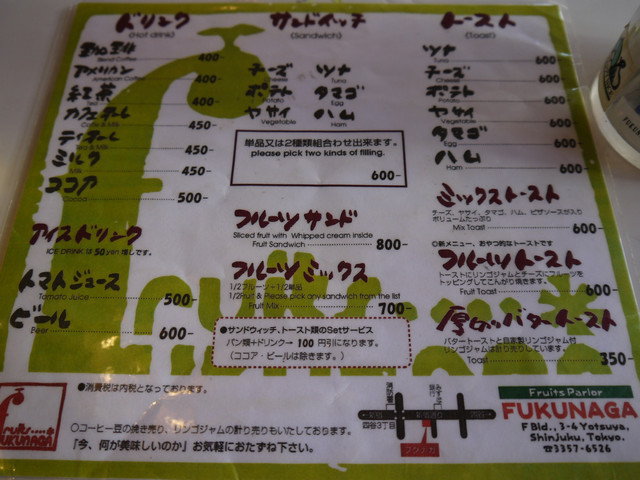 ドリンク
(Hot drink)
珈琲 400-
Blend Coffee
アメリカン 400-
American Coffee
紅茶 400-
Tea
カフェオーレ 450-
Cafe & Milk
ティオーレ 450-
Tea & Milk
ミルク 450-
Milk
ココア 500-
Cocoa
アイスドリンク
ICE DRINK は50yen 増しです。
トマトジュース 500-
Tomato Juice
ビール 600-
Beer
サンドイッチ
(Sandwich)
チーズ ツナ
Cheese Tuna
ポテト タマゴ
Potato Egg
ヤサイ ハム
Vegetable Ham
単品又は2種類組合わせ出来ます。
please pick two kinds of filling.
600-
フルーツサンド
Sliced fruit with Whipped cream inside
Fruit Sandwich 800-
フルーツミックス
1/2フルーツ+1/2単品
1/2fruit & Please pick any sandwich from the list
Fruit Mix 700-
●サンドウィッチ、トースト類のSetサービス
パン類+ドリンク→ 100円引になります。
(ココア・ビールは除きます。)
トースト
(Toast)
ツナ 600-
Tuna
チーズ 600-
Cheese
ポテト 600-
Potato
ヤサイ 600-
Vegetable
タマゴ 600-
Egg
ハム 600-
Ham
ミックストースト
チーズ、ヤサイ、タマゴ、ハム、ピザソースが入り
ボリュームたっぷり
Mix Toast 600-
◎新メニュー、おやつ的なトーストです
フルーツトースト
トーストにリンゴジャムとチーズにフルーツを
トッピングしてこんがり焼きます。
Fruit Toast 600-
厚切バタートースト
バタートーストと自家製リンゴジャム付
リンゴジャムは計り売りしています。
Toast 350-
●消費税は内税となっております。
fruits....
FUKUNAGA
○コーヒー豆の挽き売り、リンゴジャムの計り売りもいたしております。
「今、何が美味しいのか」お気軽におたずね下さい。
四谷3丁目
フクナガ
Fruits Parlor
FUKUNAGA
F Bld., 3-4 Yotsuya,
Shinjuku, Tokyo.
☎3357-6526